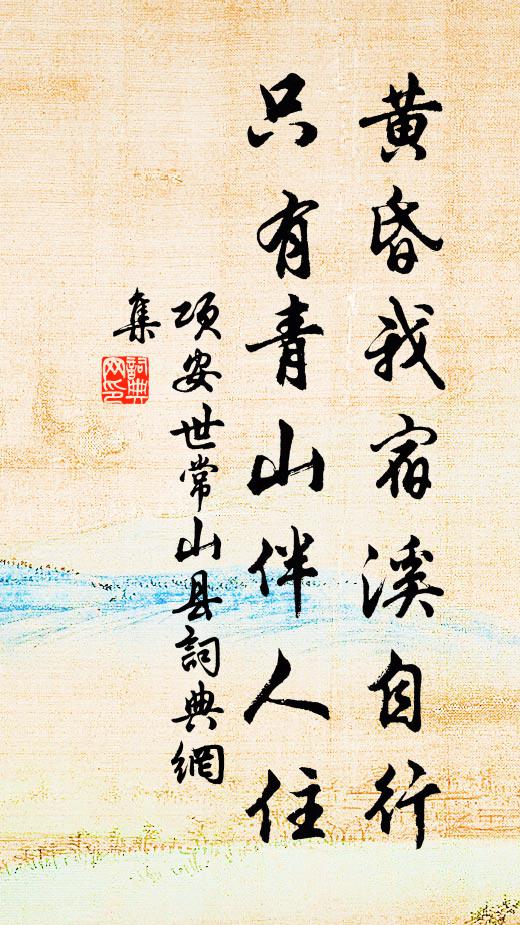 黄昏我宿溪自行
只有青山伴人住
项安世常山县詞典網
集
詞典
网印